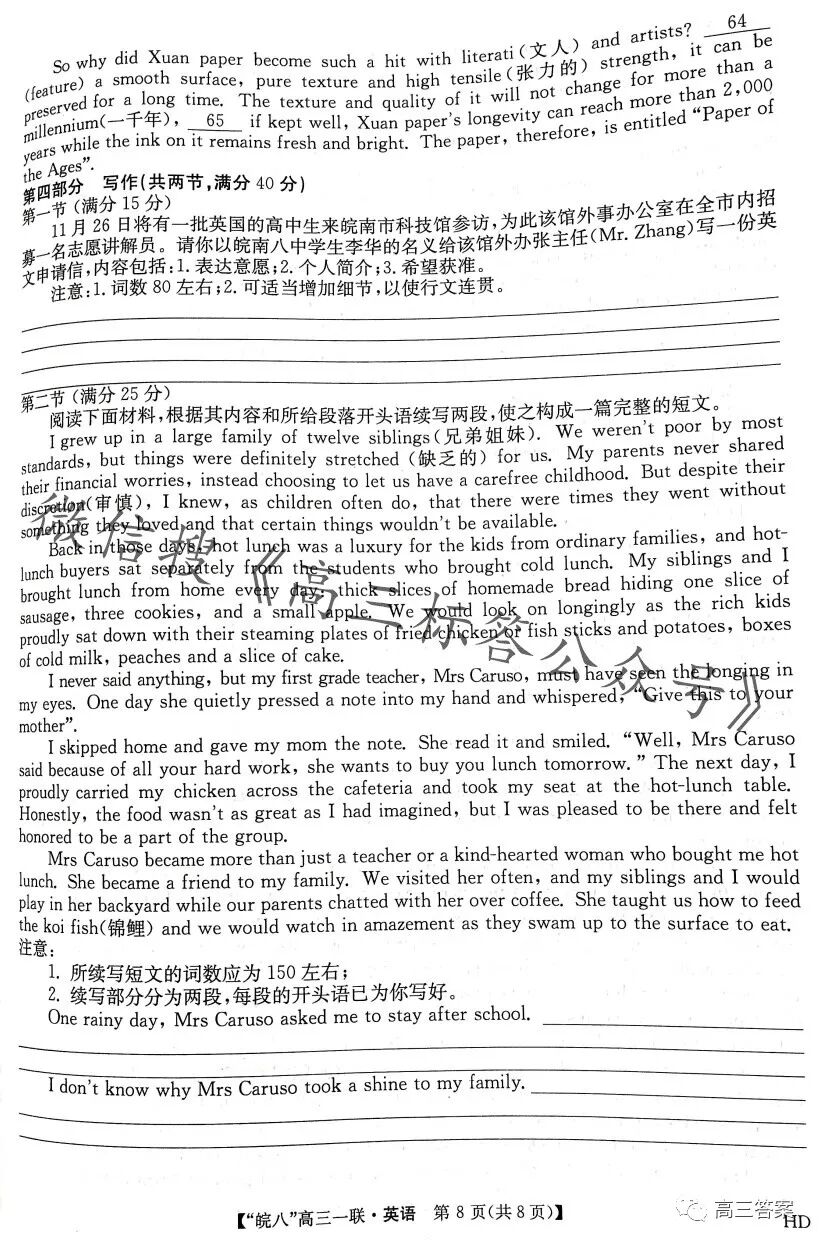 So why did Xuan paper become such a hit with literati(文人) and artists? 64
(feature) a smooth surface, pure texture and high tensile(张力的) strength, it can be
preserved for a long time. The texture and quality of it will not change for more than a
millennium(一千年), 65 if kept well, Xuan paper's longevity can reach more than 2,000
years while the ink on it remains fresh and bright. The paper, therefore, is entitled “Paper of
the Ages”.
第四部分 写作(共两节,满分 40 分)
第一节(满分 15 分)
11 月 26 日将有一批英国的高中生来皖南市科技馆参访,为此该馆外事办公室在全市内招
募一名志愿讲解员。请你以皖南八中学生李华的名义给该馆外办张主任(Mr. Zhang)写一份英
文申请信,内容包括:1. 表达意愿;2. 个人简介;3. 希望获准。
注意:1. 词数 80 左右;2. 可适当增加细节,以使行文连贯。
第二节(满分 25 分)
阅读下面材料,根据其内容和所给段落开头语续写两段,使之构成一篇完整的短文。
I grew up in a large family of twelve siblings(兄弟姐妹). We weren't poor by most
standards, but things were definitely stretched (缺乏的) for us. My parents never shared
their financial worries, instead choosing to let us have a carefree childhood. But despite their
discretion(审慎), I knew, as children often do, that there were times they went without
something they loved and that certain things wouldn't be available.
Back in those days, hot lunch was a luxury for the kids from ordinary families, and hot-
lunch buyers sat separately from the students who brought cold lunch. My siblings and I
brought lunch from home every day; thick slices of homemade bread hiding one slice of
sausage, three cookies, and a small apple. We would look on longingly as the rich kids
proudly sat down with their steaming plates of fried chicken or fish sticks and potatoes, boxes
of cold milk, peaches and a slice of cake.
I never said anything, but my first grade teacher, Mrs Caruso, must have seen the longing in
my eyes. One day she quietly pressed a note into my hand and whispered, “Give this to your
mother”.
I skipped home and gave my mom the note. She read it and smiled. “Well, Mrs Caruso
said because of all your hard work, she wants to buy you lunch tomorrow.” The next day, I
proudly carried my chicken across the cafeteria and took my seat at the hot-lunch table.
Honestly, the food wasn't as great as I had imagined, but I was pleased to be there and felt
honored to be a part of the group.
Mrs Caruso became more than just a teacher or a kind-hearted woman who bought me hot
lunch. She became a friend to my family. We visited her often, and my siblings and I would
play in her backyard while our parents chatted with her over coffee. She taught us how to feed
the koi fish(锦鲤) and we would watch in amazement as they swam up to the surface to eat.
注意:
1. 所续写短文的词数应为 150 左右;
2. 续写部分分为两段,每段的开头语已为你写好。
One rainy day, Mrs Caruso asked me to stay after school.
I don't know why Mrs Caruso took a shine to my family.
【“皖八”高三一联·英语 第 8 页(共 8 页)】
HD
微信搜《高三标答公众号》
高三答案